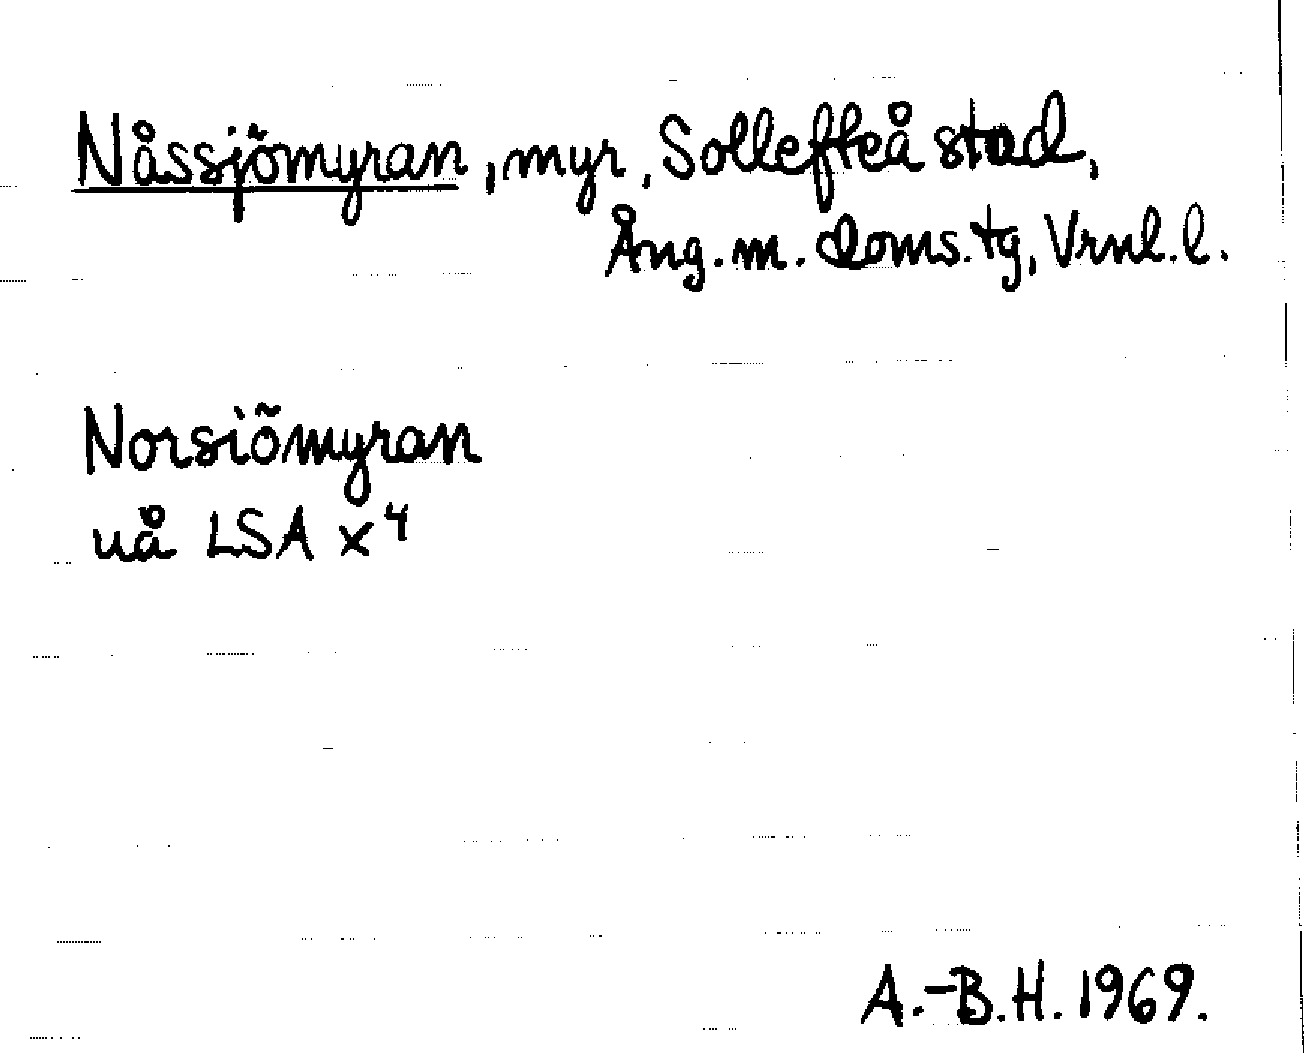 Nåssjömyran, myr, Sollefteå stad,
Ång. m. doms. tg, Vrnl. l.
Norsiömyran
uå LSA x⁴
A.-B.H. 1969.